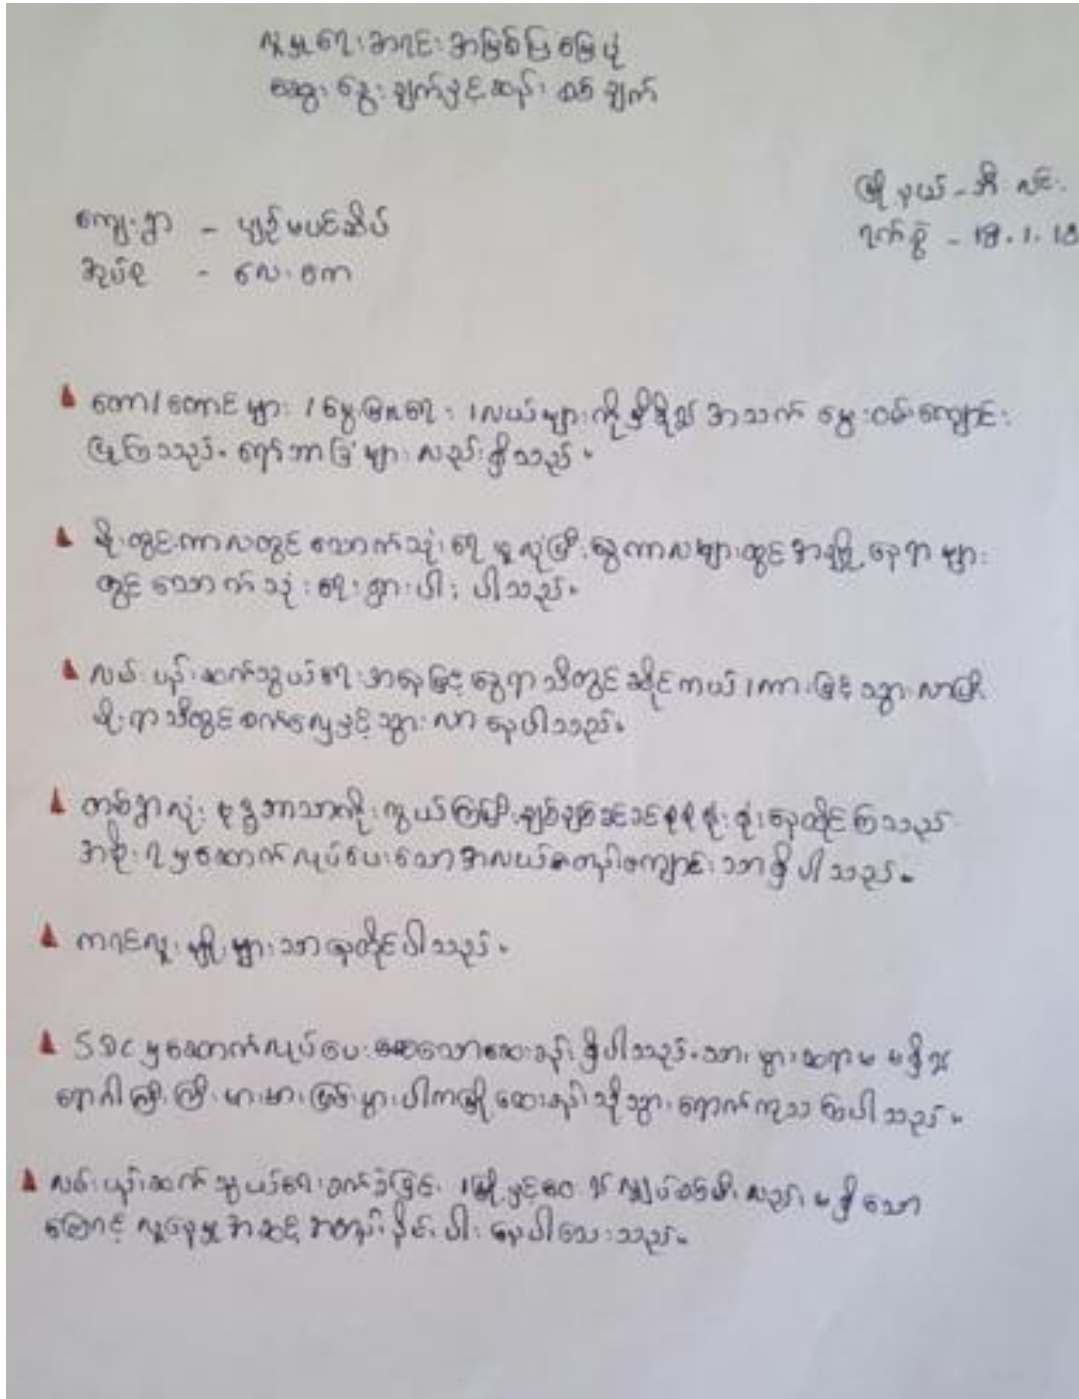 လူမှုရေးအရင်းအမြစ်ပြမြေပုံ
ဆွေးနွေးချက်နှင့်ဆန်းစစ်ချက်
မြို့နယ် - ဘီးလင်း
ကျေးရွာ - မျဉ်မပင်ဆိပ်
ရက်စွဲ - 18.1.18
အုပ်စု - လေးကေ
တော/တောင်များ /မွေးမြူရေး /လယ်များကိုမှီခို၍ အသက်မွေးဝမ်းကျောင်း
ပြုကြသည်။ ရော်ဘာခြံများလည်းရှိသည်။
မိုးတွင်းကာလတွင် သောက်သုံးရေ ဖူလုံပြီးနွေကာလများတွင် အချို့နေရာများ
တွင် သောက်သုံးရေးရှားပါးပါသည်။
လမ်းပန်းဆက်သွယ်ရေးအနေဖြင့် နွေရာသီတွင် ဆိုင်ကယ်/ကားဖြင့် သွားလာပြီး
မိုးရာသီတွင် စက်လှေနှင့်သွားလာနေပါသည်။
တစ်ရွာလုံး ဗုဒ္ဓဘာသာကိုးကွယ်ကြပြီးချစ်ချစ်ခင်ခင်စုစုစည်းစည်းနေထိုင်ကြသည်
အစိုးရမှဆောက်လုပ်ပေးသောအလယ်တန်းကျောင်းသာရှိပါသည်။
ကရင်လူမျိုးများသာနေထိုင်ပါသည်။
SDC မှဆောက်လုပ်ပေးသောဆေးခန်းရှိပါသည်။သားဖွားဆရာမ မရှိ၍
ရောဂါကြီးကြီးမားမားဖြစ်ပွားပါကမြို့ဆေးခန်းသို့သွားရောက်ကုသကြပါသည်။
လမ်းပန်းဆက်သွယ်ရေးခက်ခဲခြင်း /မြို့နှင့်ဝေး၍လျှပ်စစ်မီးလည်းမရှိသော
ကြောင့် လူနေမှုအဆင့်အတန်းနိမ့်ပါးနေပါသေးသည်။